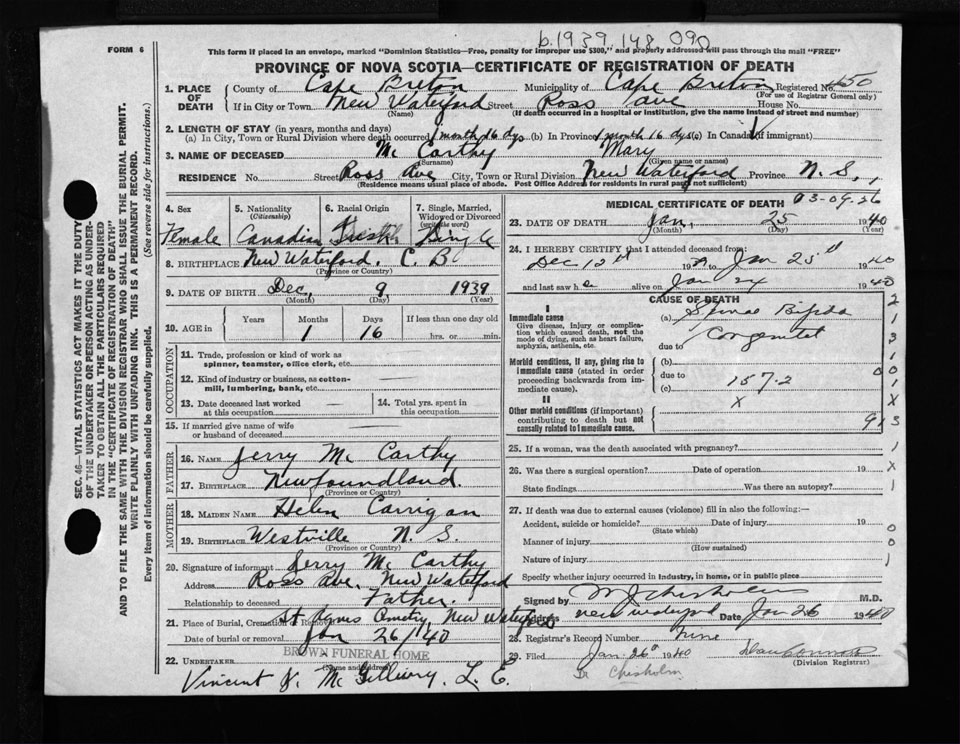 b.1939.148.090
FORM 6
This form if placed in an envelope, marked "Dominion Statistics—Free, penalty for improper use $300," and properly addressed will pass through the mail "FREE"
PROVINCE OF NOVA SCOTIA—CERTIFICATE OF REGISTRATION OF DEATH
SEC. 46—VITAL STATISTICS ACT MAKES IT THE DUTY
OF THE UNDERTAKER OR PERSON ACTING AS UNDER-
TAKER TO OBTAIN ALL THE PARTICULARS REQUIRED
IN THE "CERTIFICATE OF REGISTRATION OF DEATH"
AND TO FILE THE SAME WITH THE DIVISION REGISTRAR WHO SHALL ISSUE THE BURIAL PERMIT.
WRITE PLAINLY WITH UNFADING INK. THIS IS A PERMANENT RECORD.
Every item of information should be carefully supplied. (See reverse side for instructions.)
1. PLACE OF DEATH County of Cape Breton Municipality of Cape Breton Registered No. 450
(For use of Registrar General only)
If in City or Town New Waterford Street Ross Ave House No.
(Name) (If death occurred in a hospital or institution, give the name instead of street and number)
2. LENGTH OF STAY (in years, months and days)
(a) In City, Town or Rural Division where death occurred 1 month 16 dys (b) In Province 1 month 16 dys (c) In Canada (if immigrant)
3. NAME OF DECEASED Mc Carthy Mary
(Surname) (Given name or names)
RESIDENCE No. Street Ross Ave City, Town or Rural Division New Waterford Province N. S.
(Residence means usual place of abode. Post Office Address for residents in rural parts not sufficient)
4. Sex 5. Nationality (Citizenship) 6. Racial Origin 7. Single, Married, Widowed or Divorced (write the word)
Female Canadian Irish Single
8. BIRTHPLACE New Waterford. C. B
(Province or Country)
9. DATE OF BIRTH Dec, 9 1939
(Month) (Day) (Year)
10. AGE in Years Months Days If less than one day old
1 16 hrs. or min.
OCCUPATION
11. Trade, profession or kind of work as spinner, teamster, office clerk, etc.
12. Kind of industry or business, as cotton-mill, lumbering, bank, etc.
13. Date deceased last worked at this occupation 14. Total yrs. spent in this occupation
15. If married give name of wife or husband of deceased
FATHER
16. NAME Jerry Mc Carthy
17. BIRTHPLACE Newfoundland.
(Province or Country)
MOTHER
18. MAIDEN NAME Helen Carrigan
19. BIRTHPLACE Westville N. S.
(Province or Country)
20. Signature of informant Jerry Mc Carthy
Address Ross Ave, New Waterford
Relationship to deceased Father.
21. Place of Burial, Cremation or Removal St Agnes Cmetry, New Waterford
Date of burial or removal Jan 26/40
BROWN FUNERAL HOME
22. UNDERTAKER (Name and Address)
Vincent J. Mc Gillivry. L. E.
MEDICAL CERTIFICATE OF DEATH 03-09-26
23. DATE OF DEATH Jan, 25 1940
(Month) (Day)
24. I HEREBY CERTIFY that I attended deceased from:
Dec 12th 1939 Jan 25th 1940
and last saw h alive on Jan 24 1940
CAUSE OF DEATH
I
Immediate cause (a) Spinae Bifida
Give disease, injury or complication which caused death, not the mode of dying, such as heart failure, asphyxia, asthenia, etc.
due to Congenital
Morbid conditions, if any, giving rise to immediate cause (stated in order proceeding backwards from immediate cause).
(b)
due to
(c) 157.2
II
X
Other morbid conditions (if important) contributing to death but not causally related to immediate cause.
25. If a woman, was the death associated with pregnancy?
26. Was there a surgical operation? Date of operation 19
State findings Was there an autopsy?
27. If death was due to external causes (violence) fill in also the following:—
Accident, suicide or homicide? Date of injury 19
(State which)
Manner of injury
(How sustained)
Nature of injury
Specify whether injury occurred in industry, in home, or in public place
Signed by M J Chisholm M.D.
Address New Waterford Date Jan 26 1940
28. Registrar's Record Number Nine
29. Filed Jan. 26th 1940
(Division Registrar)
Dr Chisholm